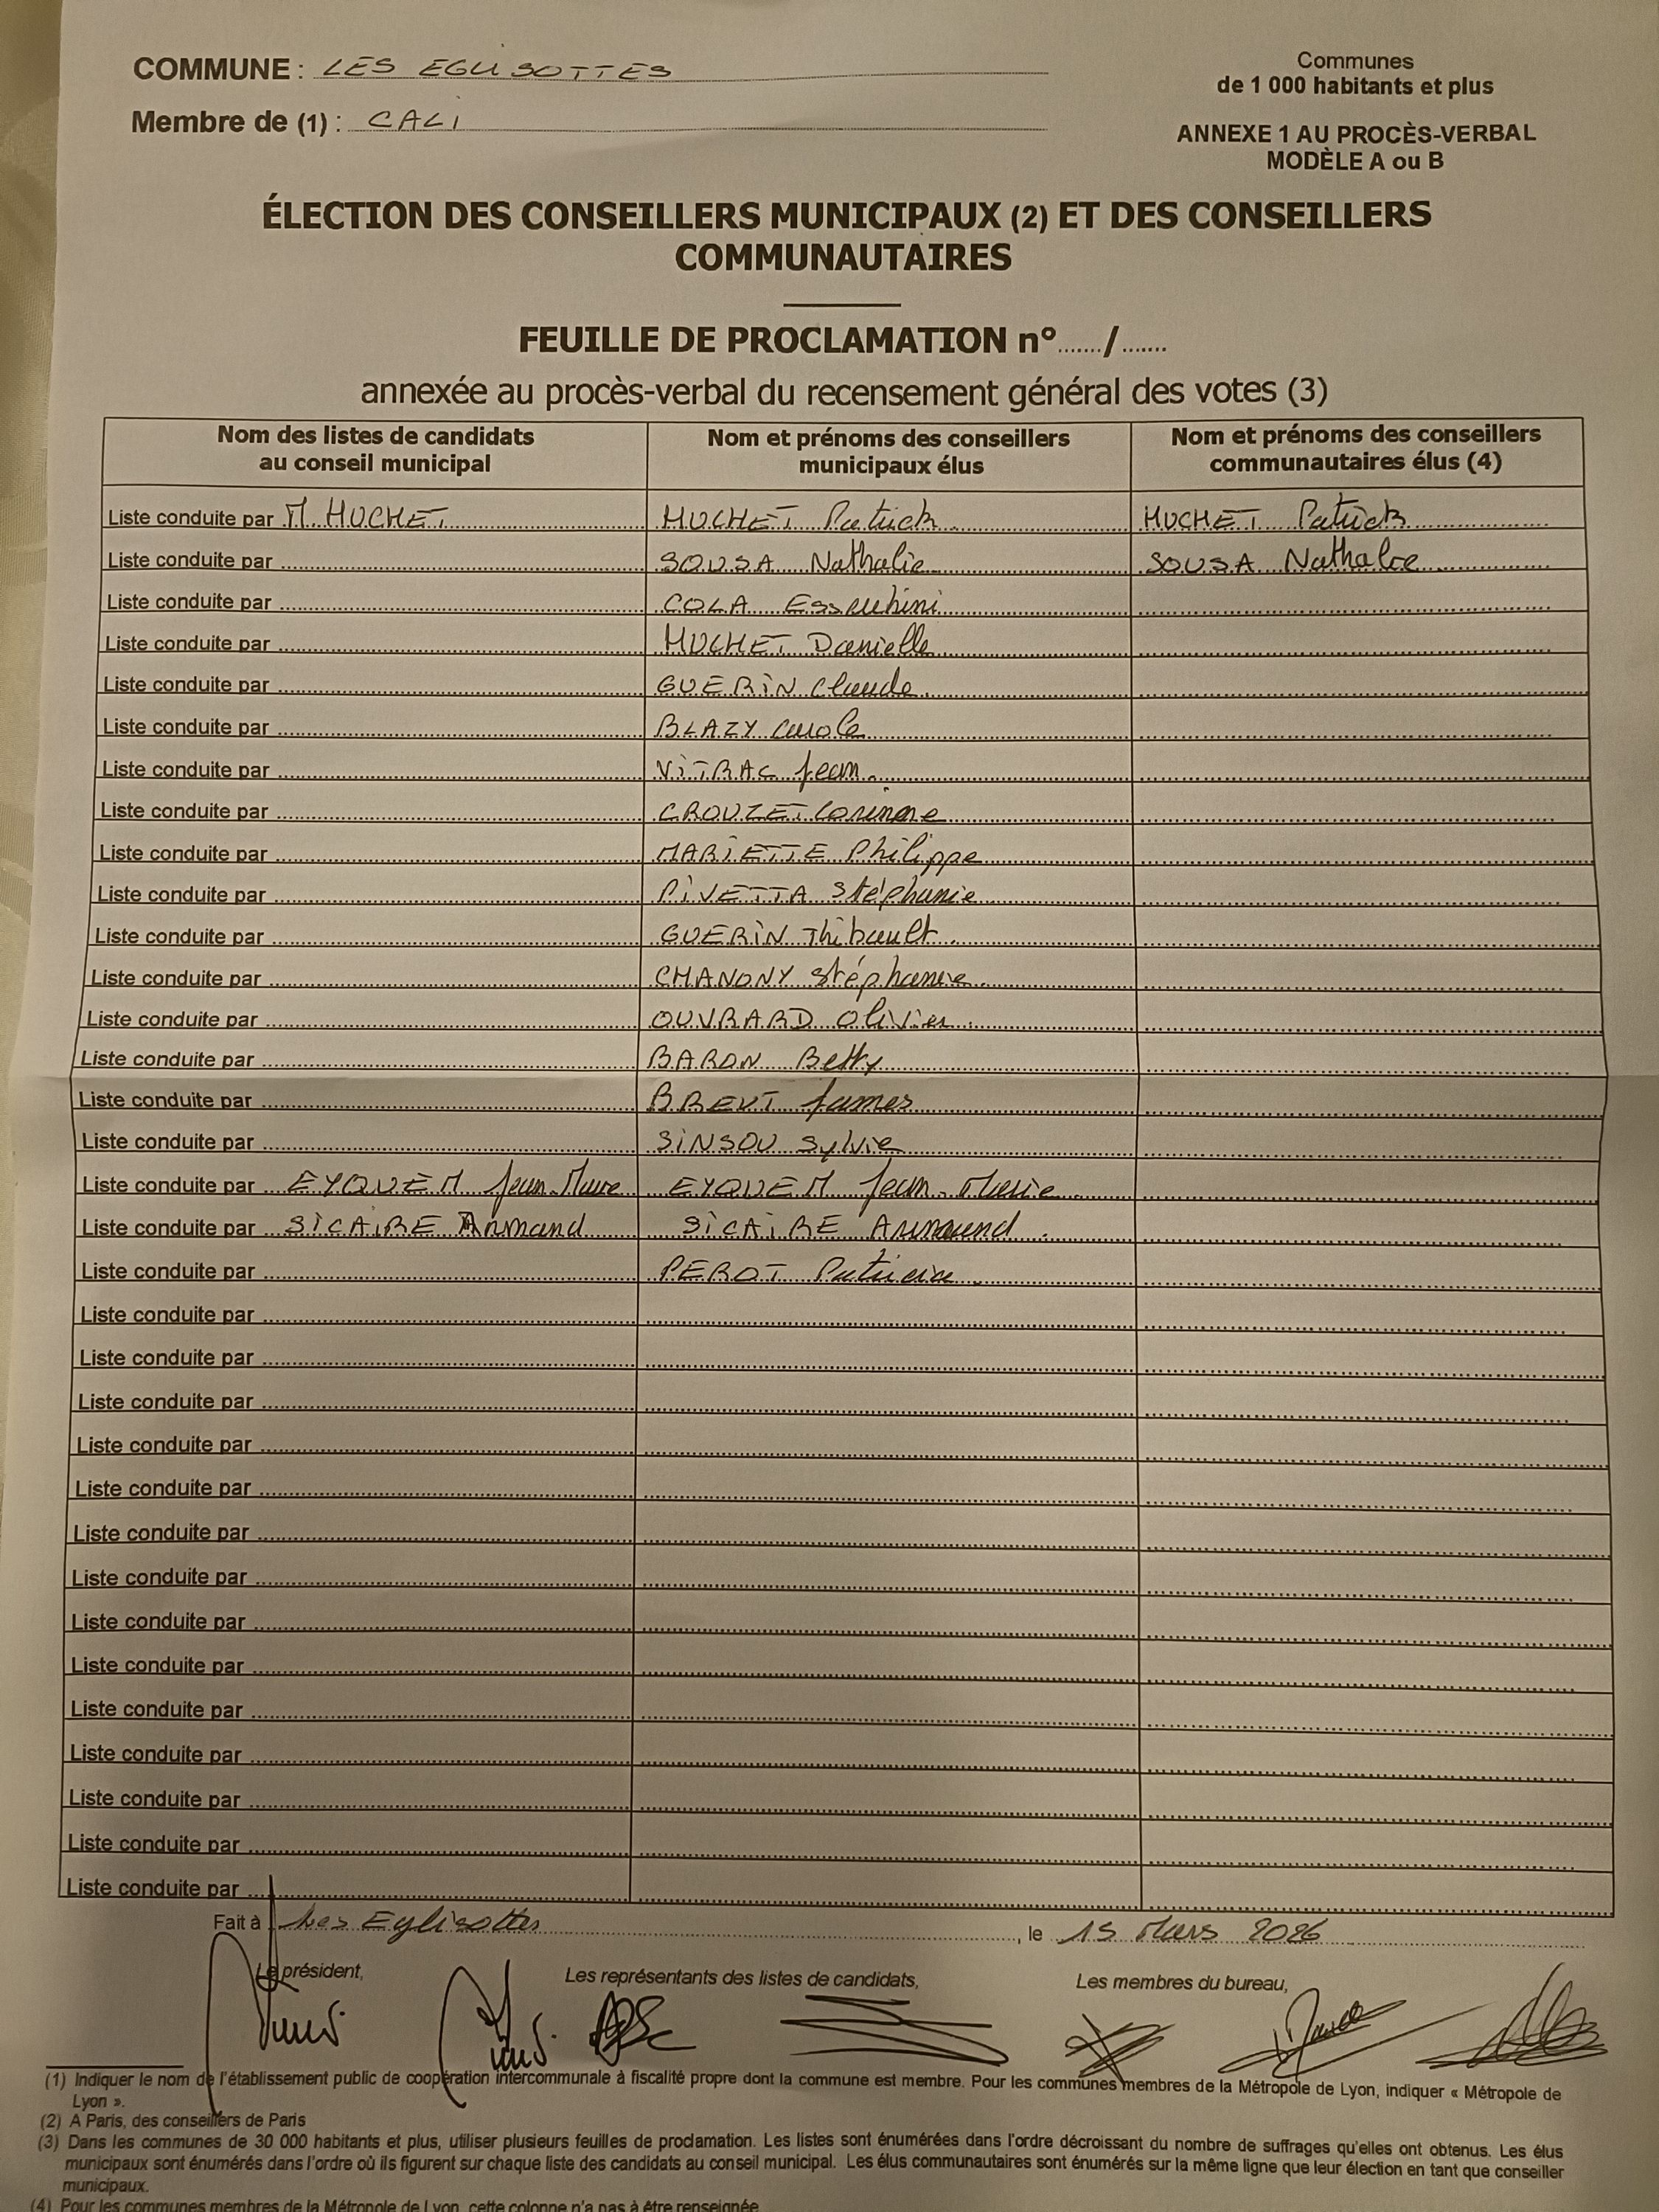 COMMUNE : LES EGLISOTTES
Communes
de 1 000 habitants et plus
Membre de (1) : CALI
ANNEXE 1 AU PROCÈS-VERBAL
MODÈLE A ou B
ÉLECTION DES CONSEILLERS MUNICIPAUX (2) ET DES CONSEILLERS
COMMUNAUTAIRES
FEUILLE DE PROCLAMATION n°....../......
annexée au procès-verbal du recensement général des votes (3)
Nom des listes de candidats
au conseil municipal
Nom et prénoms des conseillers
municipaux élus
Nom et prénoms des conseillers
communautaires élus (4)
Liste conduite par M. HUCHET HUCHET Patrick HUCHET Patrick
Liste conduite par SOUSA Nathalie SOUSA Nathalie
Liste conduite par COLA
Liste conduite par HUCHET Danielle
Liste conduite par GUERIN Claude
Liste conduite par BLAZY Carole
Liste conduite par VITRAC Jean
Liste conduite par CROUZET Corinne
Liste conduite par MARIETTE Philippe
Liste conduite par PIVETTA Stéphanie
Liste conduite par GUERIN Thibault
Liste conduite par CHANONY Stéphanie
Liste conduite par OUVRARD Olivier
Liste conduite par BARON Betty
Liste conduite par James
Liste conduite par SINSOU Sylvie
Liste conduite par EYQUEM Jean-Marie EYQUEM Jean-Marie
Liste conduite par SICAIRE Armand SICAIRE Armand
Liste conduite par PEROT Patricia
Liste conduite par
Liste conduite par
Liste conduite par
Liste conduite par
Liste conduite par
Liste conduite par
Liste conduite par
Liste conduite par
Liste conduite par
Liste conduite par
Liste conduite par
Liste conduite par
Liste conduite par
Liste conduite par
Fait à Les Eglisottes, le 15 Mars 2026
Le président,
Les représentants des listes de candidats,
Les membres du bureau,
(1) Indiquer le nom de l'établissement public de coopération intercommunale à fiscalité propre dont la commune est membre. Pour les communes membres de la Métropole de Lyon, indiquer « Métropole de
Lyon ».
(2) A Paris, des conseillers de Paris
(3) Dans les communes de 30 000 habitants et plus, utiliser plusieurs feuilles de proclamation. Les listes sont énumérées dans l'ordre décroissant du nombre de suffrages qu'elles ont obtenus. Les élus
municipaux sont énumérés dans l'ordre où ils figurent sur chaque liste des candidats au conseil municipal. Les élus communautaires sont énumérés sur la même ligne que leur élection en tant que conseiller
municipaux.
(4) Pour les communes membres de la Métropole de Lyon, cette colonne n'a pas à être renseignée